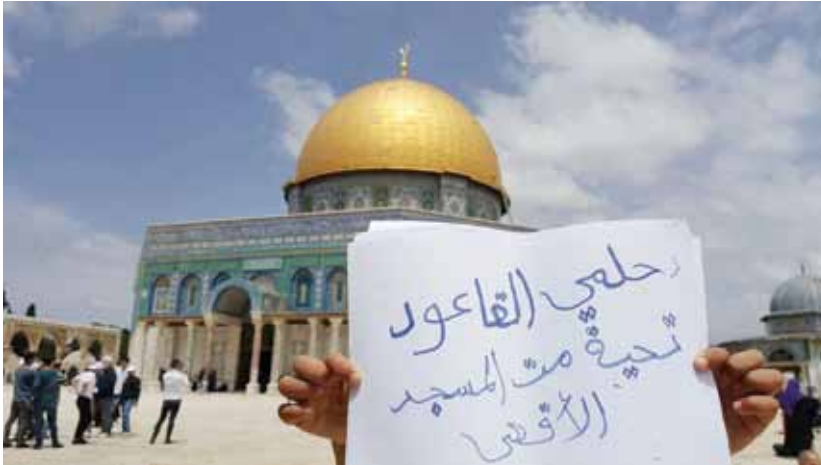 د حلمي القاعود
تحية من المسجد
الأقصى